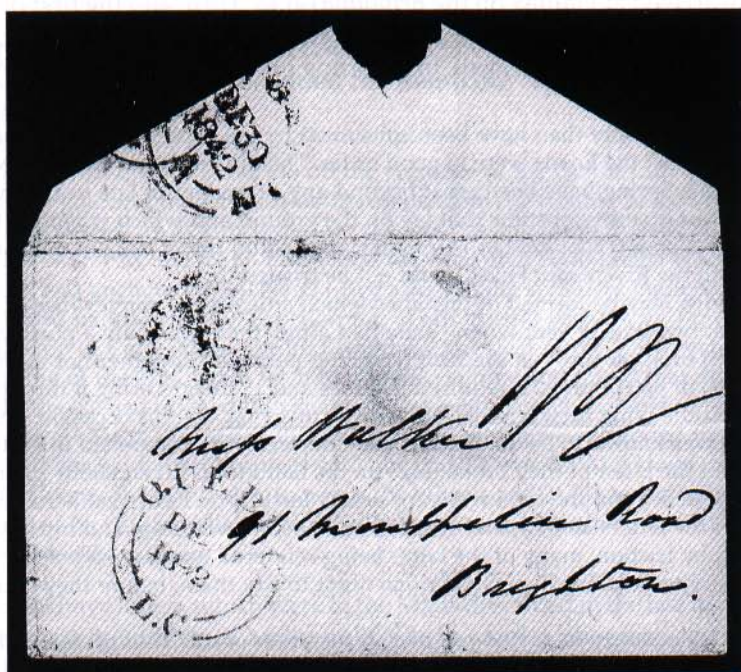 DE 30
1842
Miss Walker
91 Montpelier Road
Brighton.
O.U.E.P.
DE
1842
L.C